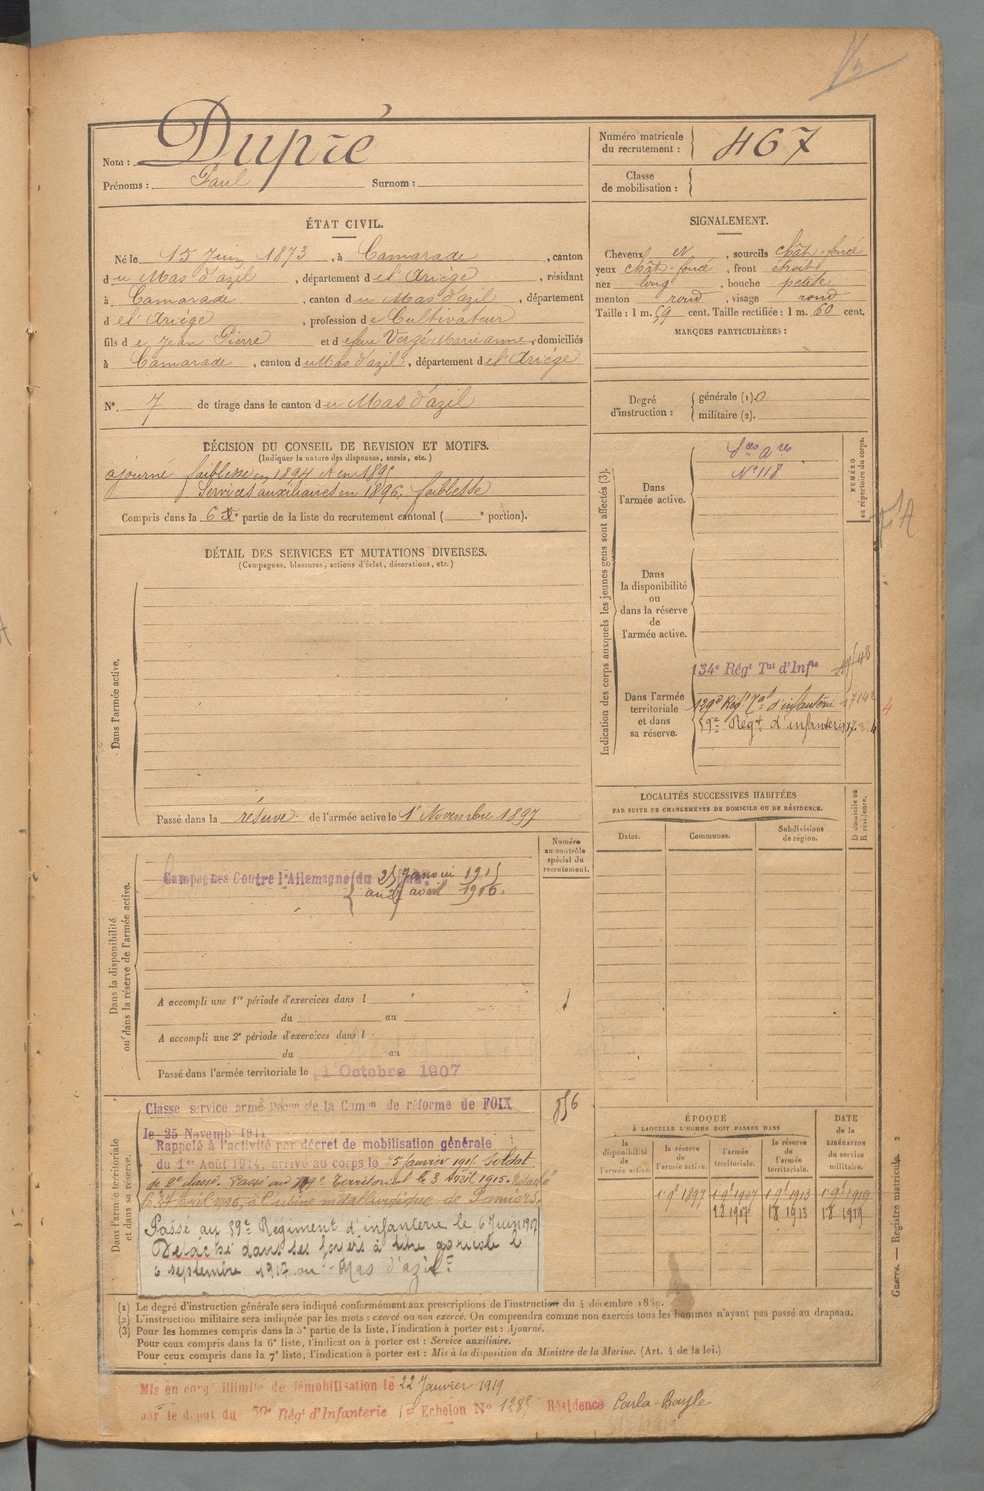 Nom : Dupré
Prénoms : Paul Surnom :
Numéro matricule du recrutement : 467
Classe de mobilisation :
ÉTAT CIVIL.
Né le 15 Juin 1873, à Camarade, canton
du Mas d'azil, département de l'Ariège, résidant
à Camarade, canton du Mas d'azil, département
de l'Ariège, profession de Cultivateur
fils de Jean Pierre et de Vergé Marie anne, domiciliés
à Camarade, canton du Mas d'azil, département de l'Ariège
N° 7 de tirage dans le canton du Mas d'azil
SIGNALEMENT.
Cheveux N, sourcils chât. foncé
yeux chât. foncé, front étroit
nez long, bouche petite
menton rond, visage rond
Taille : 1 m. 59 cent. Taille rectifiée : 1 m. 60 cent.
MARQUES PARTICULIÈRES :
Degré d'instruction : générale (1). 0
militaire (2).
DÉCISION DU CONSEIL DE REVISION ET MOTIFS.
(Indiquer la nature des dispenses, sursis, etc.)
ajourné faiblesse en 1894 et en 1895
Services auxiliaires en 1896. faiblesse
Compris dans la 6e partie de la liste du recrutement cantonal ( e portion).
DÉTAIL DES SERVICES ET MUTATIONS DIVERSES.
(Campagnes, blessures, actions d'éclat, décorations, etc.)
Dans l'armée active.
Passé dans la réserve de l'armée active le 1r Novembre 1897
Indication des corps auxquels les jeunes gens sont affectés (3).
NUMÉRO au répertoire du corps.
Dans l'armée active.
N° 118
Dans la disponibilité ou dans la réserve de l'armée active.
Dans l'armée territoriale et dans sa réserve.
134e Régt Tal d'Infie
129e Régt Tal d'infanterie
59e Regt d'infanterie
LOCALITÉS SUCCESSIVES HABITÉES
PAR SUITE DE CHANGEMENTS DE DOMICILE OU DE RÉSIDENCE.
D domicile ou R résidence.
Dates. Communes. Subdivisions de région.
Dans la disponibilité ou dans la réserve de l'armée active.
Numéro au contrôle spécial du recrutement.
Campagnes Contre l'Allemagne du 25 Janvier 1915
au 27 avril 1916.
A accompli une 1re période d'exercices dans l
du au
A accompli une 2e période d'exercices dans l
du au
Passé dans l'armée territoriale le 1 Octobre 1907
Dans l'armée territoriale et dans sa réserve.
Classe service armé Décon de la Comon de réforme de FOIX
856
le 25 Novembre 1914
Rappelé à l'activité par décret de mobilisation générale
du 1er Août 1914. arrivé au corps le 25 Janvier 1915. Soldat
de 2e classe. Passé au 129e Territorial le 3 Août 1915. Détaché
le 27 Avril 1916, à l'usine métallurgique de Pamiers.
Passé au 59e Régiment d'infanterie le 6 Juin 1917
Détaché dans ses foyers à titre agricole le
6 septembre 1917 au Mas d'azil.
ÉPOQUE
À LAQUELLE L'HOMME DOIT PASSER DANS
la disponibilité de l'armée active.
la réserve de l'armée active.
l'armée territoriale.
la réserve de l'armée territoriale.
DATE de la LIBÉRATION du service militaire.
1 9e 1897 1 9e 1907 1 9e 1913 1 9e 1919
(1) Le degré d'instruction générale sera indiqué conformément aux prescriptions de l'instruction du 4 décembre 1889.
(2) L'instruction militaire sera indiquée par les mots : exercé ou non exercé. On comprendra comme non exercés tous les hommes n'ayant pas passé au drapeau.
(3) Pour les hommes compris dans la 5e partie de la liste, l'indication à porter est : Ajourné.
Pour ceux compris dans la 6e liste, l'indication à porter est : Service auxiliaire.
Pour ceux compris dans la 7e liste, l'indication à porter est : Mis à la disposition du Ministre de la Marine. (Art. 4 de la loi.)
Guerre. — Registre matricule. 2
Mis en congé illimité de démobilisation le 22 Janvier 1919
par le dépôt du 59e Régt d'Infanterie 1er Echelon N° 1285 Résidence Carla-Bayle